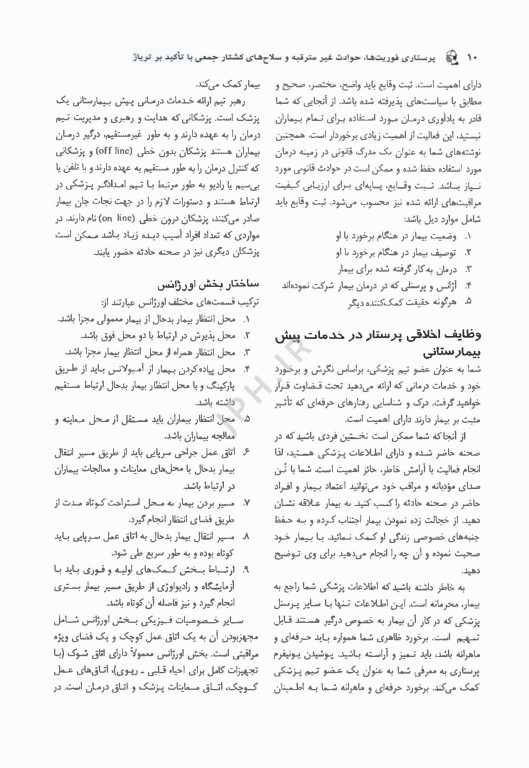 ۱۰ پرستاری فوریت‌ها، حوادث غیر مترقبه و سلاح‌های کشتار جمعی با تأکید بر تریاژ
دارای اهمیت است. ثبت وقایع باید واضح، مختصر، صحیح و
مطابق با سیاست‌های پذیرفته شده باشد. از آنجایی که شما
قادر به یادآوری درمان مورد استفاده برای تمام بیماران
نیستید، این فعالیت از اهمیت زیادی برخوردار است. همچنین
نوشته‌های شما به عنوان یک مدرک قانونی در زمینه درمان
مورد استفاده حفظ شده و ممکن است در حوادث قانونی مورد
نیاز باشد. ثبت وقایع، پایه‌ای برای ارزیابی کیفیت
مراقبت‌های ارائه شده نیز محسوب می‌شود. ثبت وقایع باید
شامل موارد ذیل باشد:
۱. وضعیت بیمار در هنگام برخورد با او
۲. توصیف بیمار در هنگام برخورد با او
۳. درمان به کار گرفته شده برای بیمار
۴. آژانس و پرسنلی که در درمان بیمار شرکت نموده‌اند
۵. هرگونه حقیقت کمک‌کننده دیگر
وظایف اخلاقی پرستار در خدمات پیش
بیمارستانی
شما به عنوان عضو تیم پزشکی، براساس نگرش و برخورد
خود و خدمات درمانی که ارائه می‌دهید تحت قضاوت قرار
خواهید گرفت. درک و شناسایی رفتارهای حرفه‌ای که تأثیر
مثبت بر بیمار دارند دارای اهمیت است.
از آنجا که شما ممکن است نخستین فردی باشید که در
صحنه حاضر شده و دارای اطلاعات پزشکی هستید، لذا
انجام فعالیت با آرامش خاطر، حائز اهمیت است. شما با تُن
صدای مؤدبانه و مراقب خود می‌توانید اعتماد بیمار و افراد
حاضر در صحنه حادثه را کسب کنید. به بیمار علاقه نشان
دهید. از خجالت زده نمودن بیمار اجتناب کرده و به حفظ
جنبه‌های خصوصی زندگی او کمک نمائید. با بیمار خود
صحبت نموده و آن چه را انجام می‌دهید برای وی توضیح
دهید.
به خاطر داشته باشید که اطلاعات پزشکی شما راجع به
بیمار، محرمانه است. این اطلاعات تنها با سایر پرسنل
پزشکی که در کار آن بیمار به خصوص درگیر هستند قابل
تسهیم است. برخورد ظاهری شما همواره باید حرفه‌ای و
ماهرانه باشد، باید تمیز و آراسته باشید. پوشیدن یونیفرم
پرستاری به معرفی شما به عنوان یک عضو تیم پزشکی
کمک می‌کند. برخورد حرفه‌ای و ماهرانه شما به اطمینان
بیمار کمک می‌کند.
رهبر تیم ارائه خدمات درمانی پیش بیمارستانی یک
پزشک است. پزشکانی که هدایت و رهبری و مدیریت تیم
درمان را به عهده دارند و به طور غیرمستقیم، درگیر درمان
بیماران هستند پزشکان بدون خطی (off line) و پزشکانی
که کنترل درمان را به طور مستقیم به عهده دارند و با تلفن یا
بی‌سیم یا رادیو به طور مرتبط با تیم امدادگر پزشکی در
ارتباط هستند و دستورات لازم را در جهت نجات جان بیمار
صادر می‌کنند، پزشکان درون خطی (on line) نام دارند. در
مواردی که تعداد افراد آسیب دیده زیاد باشد ممکن است
پزشکان دیگری نیز در صحنه حادثه حضور یابند.
ساختار بخش اورژانس
ترکیب قسمت‌های مختلف اورژانس عبارتند از:
۱. محل انتظار بیمار بدحال از بیمار معمولی مجزا باشد.
۲. محل پذیرش در ارتباط با دو محل فوق باشد.
۳. محل انتظار همراه از محل انتظار بیمار مجزا باشد.
۴. محل پیاده کردن بیمار از آمبولانس باید از طریق
پارکینگ و با محل انتظار بیمار بدحال ارتباط مستقیم
داشته باشد.
۵. محل انتظار بیماران باید مستقل از محل معاینه و
معالجه بیماران باشد.
۶. اتاق عمل جراحی سرپایی باید از طریق مسیر انتقال
بیمار بدحال با محل‌های معاینات و معالجات بیماران
در ارتباط باشد.
۷. مسیر بردن بیمار به محل استراحت کوتاه مدت از
طریق فضای انتظار انجام گیرد.
۸. مسیر انتقال بیمار بدحال به اتاق عمل سرپایی باید
کوتاه بوده و به طور سریع طی شود.
۹. ارتباط بخش کمک‌های اولیه و فوری باید با
آزمایشگاه و رادیولوژی از طریق مسیر بیمار بستری
انجام گیرد و نیز فاصله آن کوتاه باشد.
سایر خصوصیات فیزیکی بخش اورژانس شامل
مجهزبودن آن به یک اتاق عمل کوچک و یک فضای ویژه
مراقبتی است. بخش اورژانس معمولاً دارای اتاق شوک (با
تجهیزات کامل برای احیاء قلبی ـ ریوی)، اتاق‌های عمل
کوچک، اتاق معاینات پزشک و اتاق درمان است. در
JPH.IR